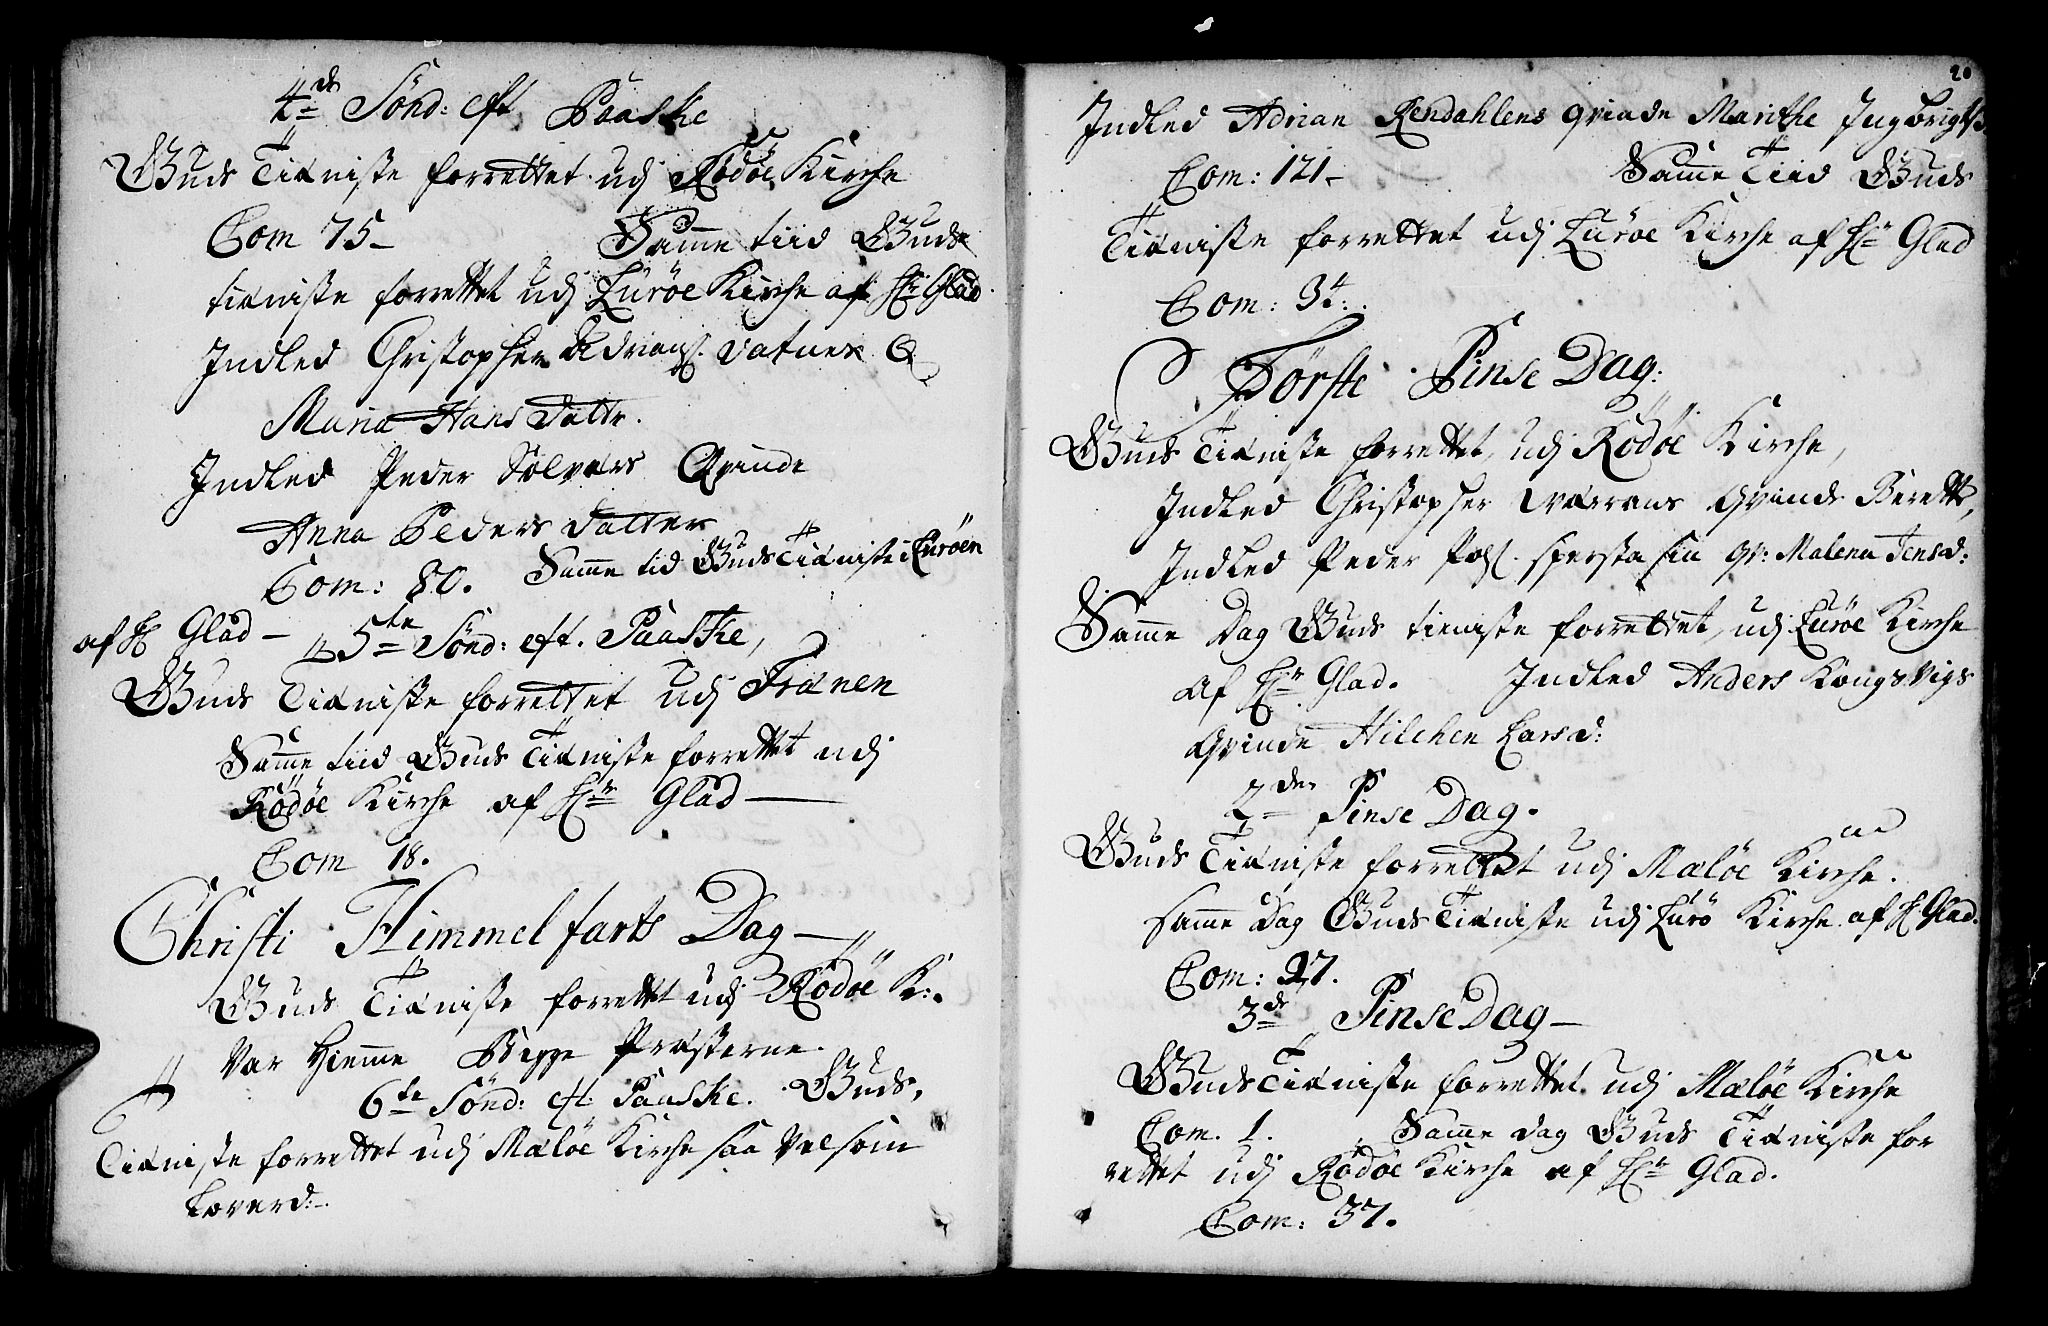 4de Sönd: eft Paaske
Guds Tieniste forrettet udj Rödöe Kirche
Com 75- Samme tiid Guds
tieniste forrettet udj Luröe Kirche af Hr Glad
Indled Christopher Adrians. Vatnes Q
Maria Hans Dattr.
Indled Peder Sölvers Qvinde
Anna Peders Datter
Com: 80. Samme tid Guds Tieniste i Luröen
af H Glad -
5te Sönd: eft. Paaske,
Guds Tieniste forrettet udj Trænen
Samme tiid Guds Tieniste forrettet udj
Rödöe Kirche af Hr Glad -
Com 18.
Christi Himmelfarts Dag -
Guds Tieniste forrettet udj Rödöe K:.
Var hiemme Begge Præsterne.
6te Sönd: eft Paaske. Guds,
Tieniste forrettet udj Mælöe Kirche saa Vel som
Loverd:-
20
Indled Adrian Rendahlens qvinde Marithe Ingbrigts
Com: 121- Samme Tiid Guds
Tieniste forrettet udj Luröe Kirche af Hr Glad
Com: 34:
Förste Pinse Dag:
Guds Tieniste forrettet, udj Rödöe Kirche,
Indled Christopher Qvinde Berett,
Indled Peder Pofs. qv: Malena Jensd:
Samme Dag Guds tieniste forrettet, udj Luröe Kirche
af Hr Glad. Indled Anders Kongsvigs
Qvinde Hilchen Larsd:
2den Pinse Dag.
Guds Tieniste forrettet udj Mælöe Kirche.
samme Dag Guds Tieniste udj Lurö Kirche af H Glad.
Com: 27.
3de Pinse Dag -
Guds Tieniste forrettet udj Mælöe Kirche
Com. 1. Samme dag Guds Tieniste for
rettet udj Rödöe Kirche af Hr Glad.
Com: 37.